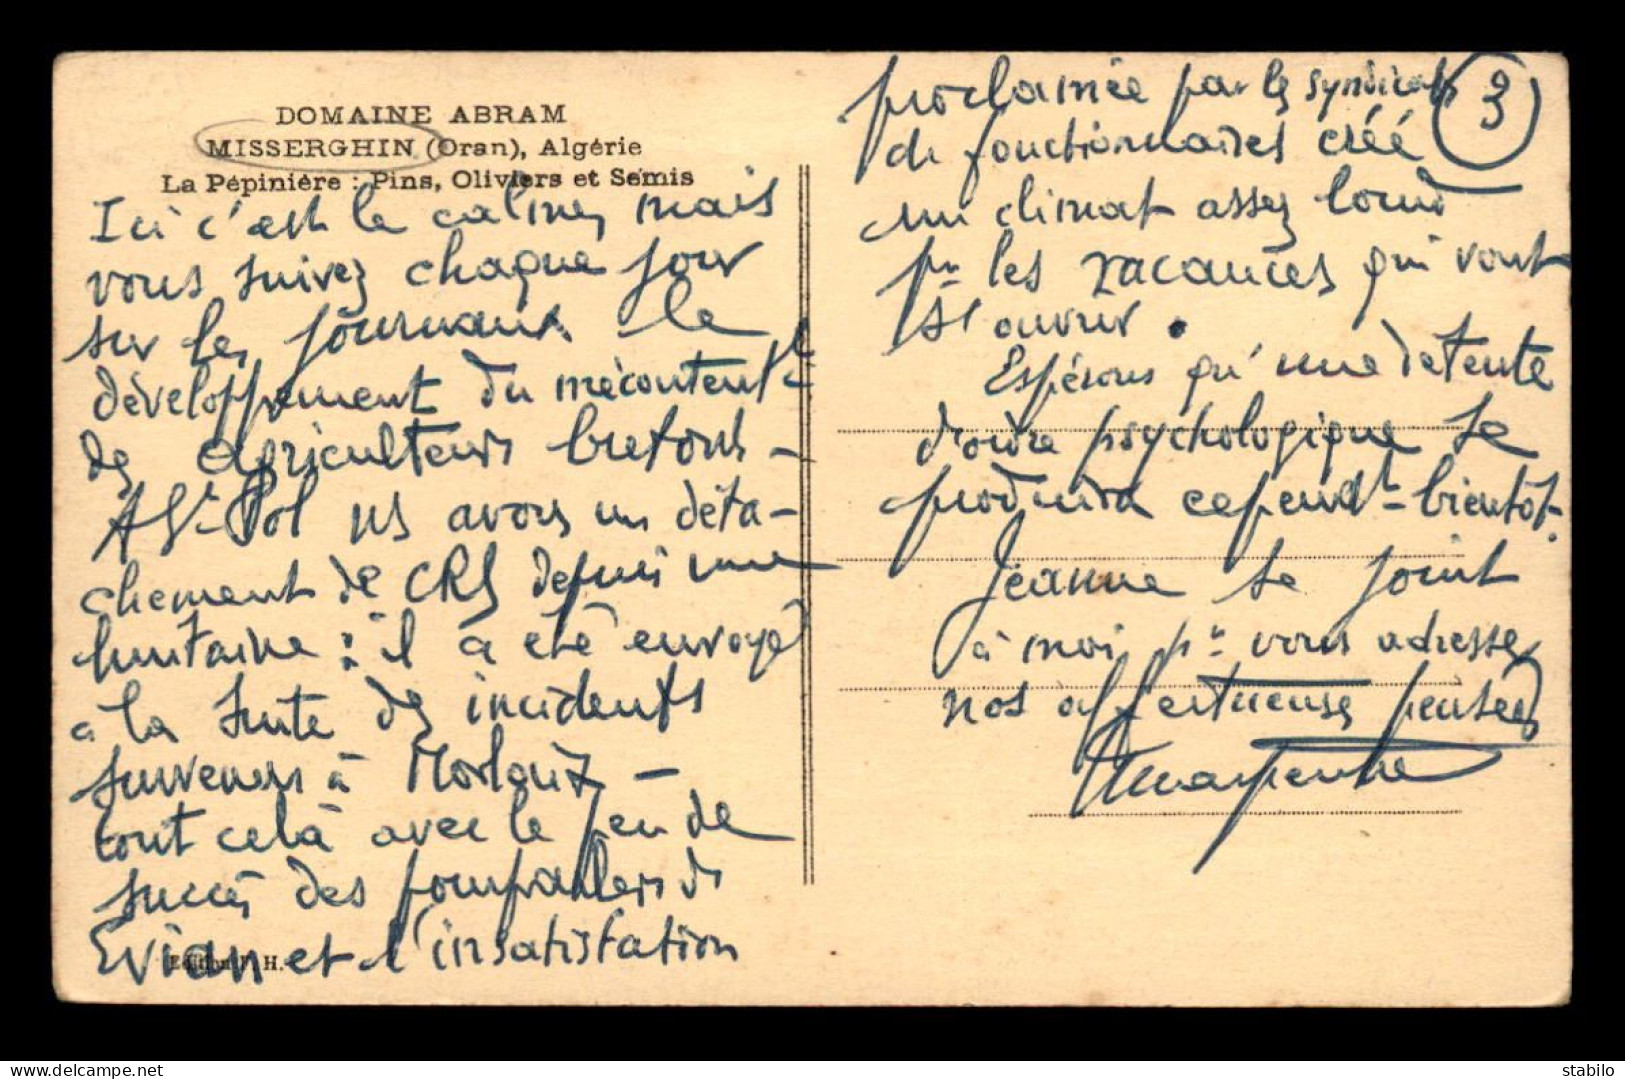 DOMAINE ABRAM
MISSERGHIN (Oran), Algérie
La Pépinière : Pins, Oliviers et Semis
Ici c'est le calme, mais
vous suivez chaque jour
sur les journaux le
développement du mécontentt
des agriculteurs bretons -
A St Pol ns avons un déta-
chement de CRS depuis une
huitaine : il a été envoyé
à la suite des incidents
survenus à Morlaix -
tout celà avec le peu de
succès des pourparlers d'
Evian et l'insatisfation
Edition P. H.
proclamée par les syndicats
de fonctionnaires créé
un climat assez lourd
pr les vacances qui vont
s'ouvrir.
Espérons qu'une detente
d'ordre psychologique se
produira cependt - bientôt.
Jeanne se joint
à moi pr vous adresser
nos affectueuses pensées
3
delcampe.net
stabilo